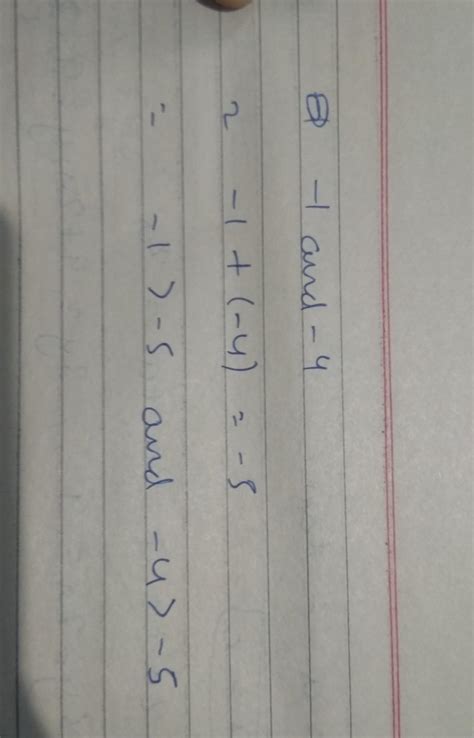 -1 and -4
-1 + (-4) = -5
= -1 > -5 and -4 > -5